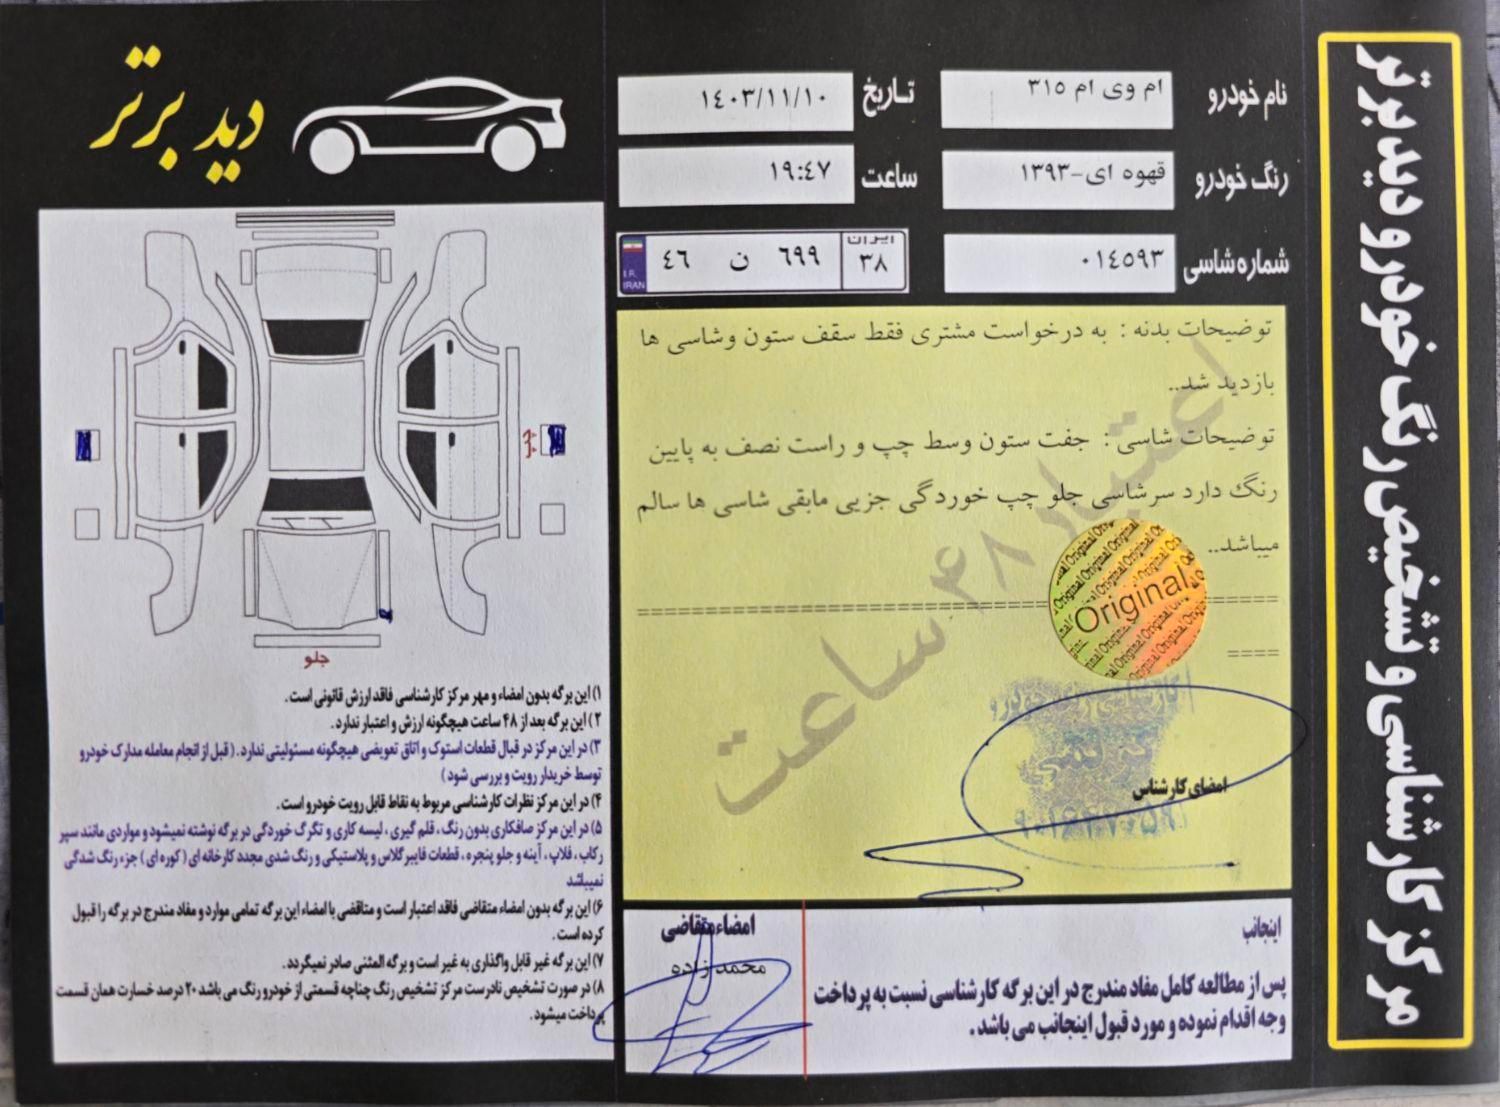 مرکز کارشناسی و تشخیص رنگ خودرو دید برتر
دید برتر
نام خودرو
ام وی ام ٣١٥
تاریخ
١٤٠٣/١١/١٠
رنگ خودرو
قهوه ای-١٣٩٣
ساعت
١٩:٤٧
شماره شاسی
٠١٤٥٩٣
I.R.
IRAN
٤٦ ن ٦٩٩
ایران
٣٨
توضیحات بدنه : به درخواست مشتری فقط سقف ستون وشاسی ها
بازدید شد..
توضیحات شاسی : جفت ستون وسط چپ و راست نصف به پایین
رنگ دارد سرشاسی جلو چپ خوردگی جزیی مابقی شاسی ها سالم
میباشد..
اعتبار ۴۸ ساعت
Original
امضای کارشناس
جلو
۱) این برگه بدون امضاء و مهر مرکز کارشناسی فاقد ارزش قانونی است.
۲) این برگه بعد از ۴۸ ساعت هیچگونه ارزش و اعتبار ندارد.
۳) در این مرکز در قبال قطعات استوک و اتاق تعویضی هیچگونه مسئولیتی ندارد. (قبل از انجام معامله مدارک خودرو
توسط خریدار رویت و بررسی شود)
۴) در این مرکز نظرات کارشناسی مربوط به نقاط قابل رویت خودرو است.
۵) در این مرکز صافکاری بدون رنگ، قلم گیری، لیسه کاری و تگرگ خوردگی در برگه نوشته نمیشود و مواردی مانند سپر
رکاب، فلاپ، آینه و جلو پنجره، قطعات فایبرگلاس و پلاستیکی و رنگ شدی مجدد کارخانه ای (کوره ای) جزء رنگ شدگی
نمیباشد
۶) این برگه بدون امضاء متقاضی فاقد اعتبار است و متاقضی با امضاء این برگه تمامی موارد و مفاد مندرج در برگه را قبول
کرده است.
۷) این برگه غیر قابل واگذاری به غیر است و برگه المثنی صادر نمیگردد.
۸) در صورت تشخیص نادرست مرکز تشخیص رنگ چناچه قسمتی از خودرو رنگ می باشد ۲۰ درصد خسارت همان قسمت
پرداخت میشود.
اینجانب
پس از مطالعه کامل مفاد مندرج در این برگه کارشناسی نسبت به پرداخت
وجه اقدام نموده و مورد قبول اینجانب می باشد.
امضاء متقاضی
محمد زاده